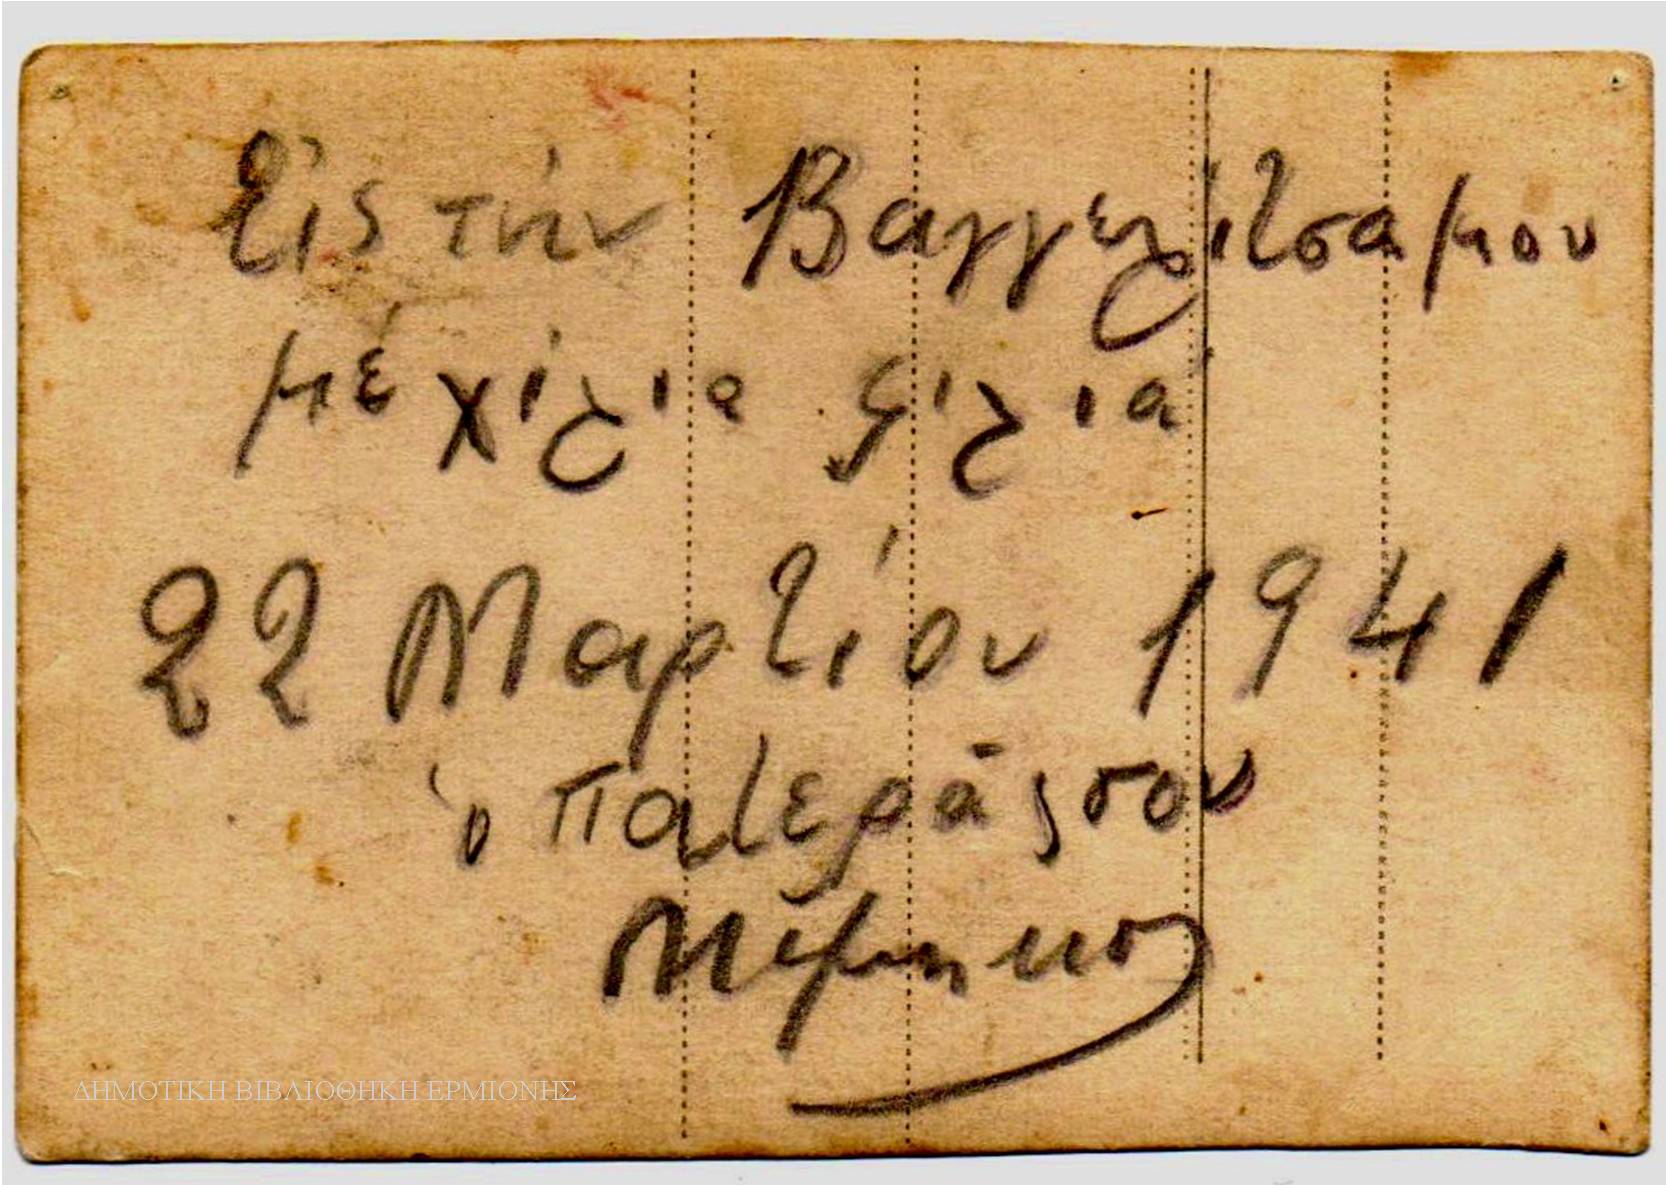 Εἰς τήν Βαγγελίτσα μου
μέ χίλια φιλιά
22 Μαρτίου 1941
ὁ πατεράς σου
ΔΗΜΟΤΙΚΗ ΒΙΒΛΙΟΘΗΚΗ ΕΡΜΙΟΝΗΣ